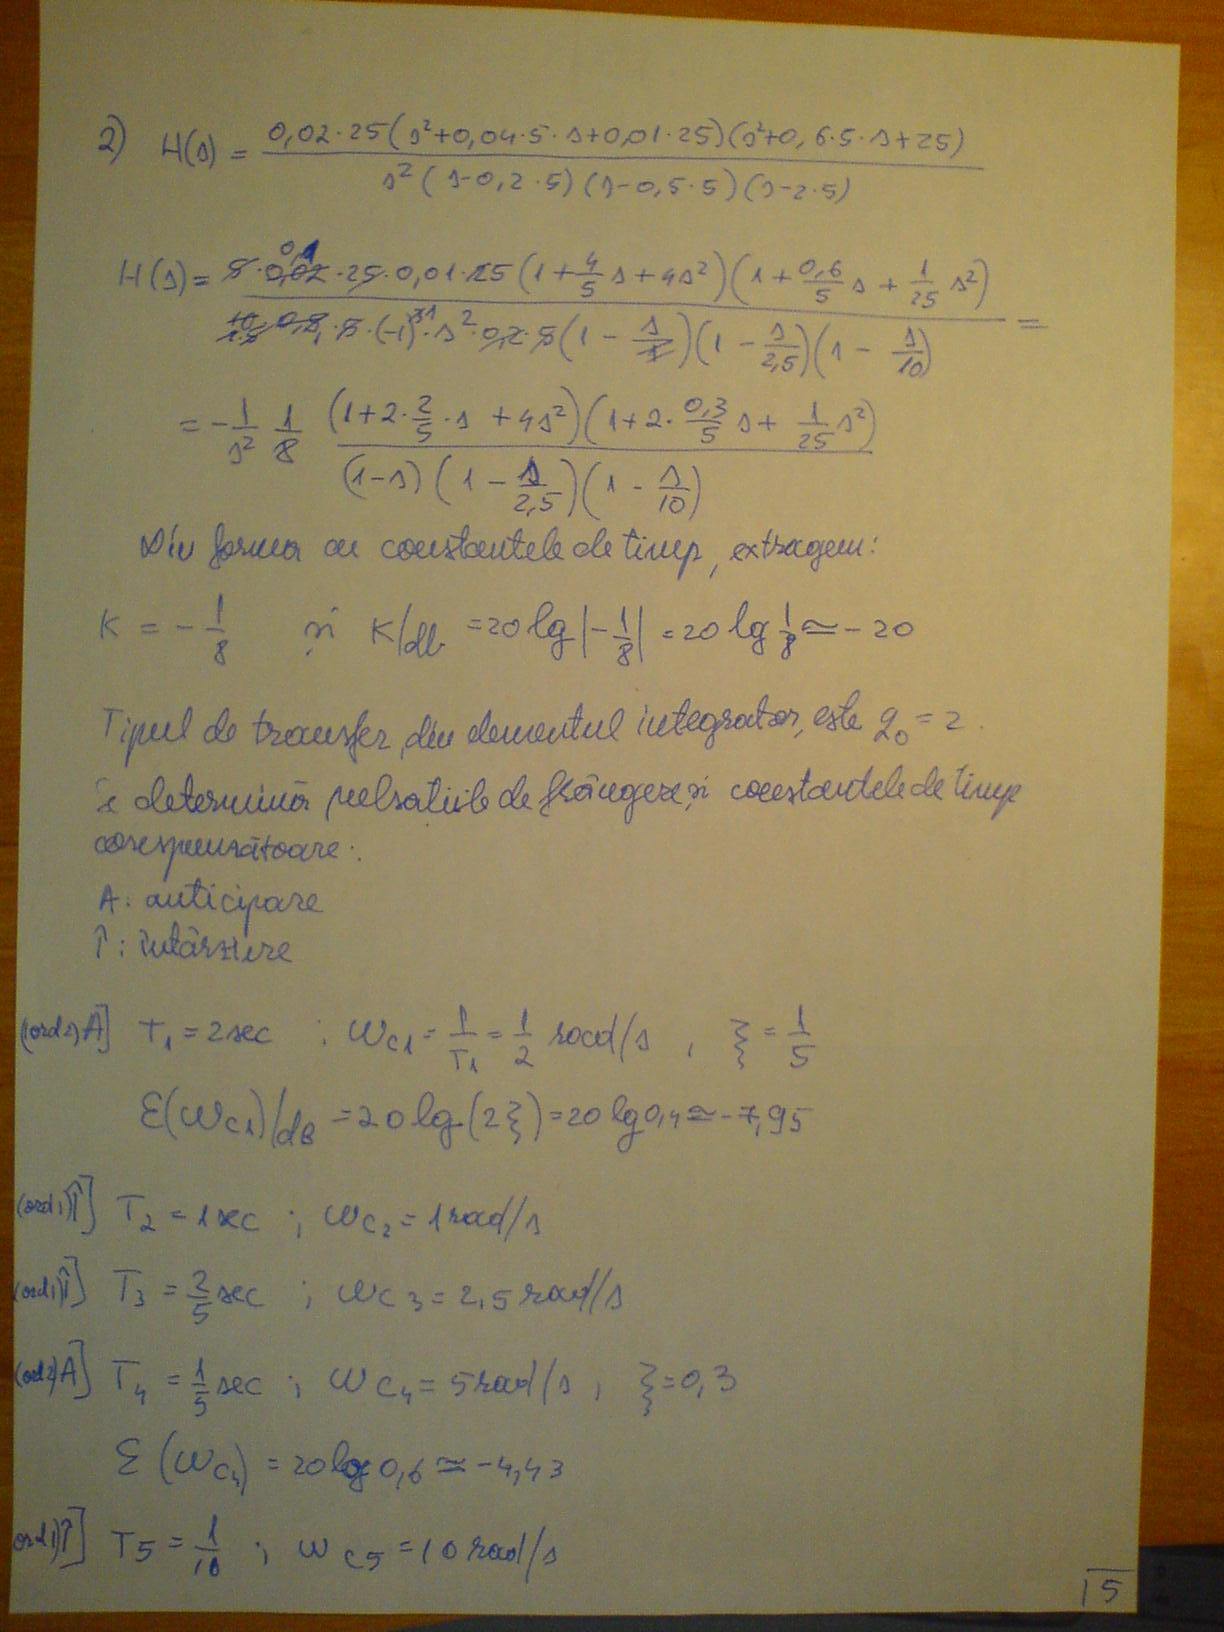 2) H(s) = 0,02·25(s²+0,04·5·s+0,01·25)(s²+0,6·5·s+25) / s²(s-0,2·5)(s-0,5·5)(s-2·5)
H(s) = 5·0,02·25·0,01·25(1+4/5 s+4s²)(1+0,6/5 s+1/25 s²) / ·5·(-1)³·s²·0,2·5(1-s/1)(1-s/2,5)(1-s/10) =
= -1/s² 1/8 (1+2·2/5·s+4s²)(1+2·0,3/5 s+1/25 s²) / (1-s)(1-s/2,5)(1-s/10)
Din forma cu constantele de timp, extragem:
K = -1/8 și K/db = 20 lg|-1/8| = 20 lg 1/8 ≃ -20
Tipul de transfer, din elementul integrator, este q₀ = 2.
Se determină pulsatiile de frângere și constantele de timp
corespunzătoare:
A: anticipare
Î: întârziere
(ord2) A] T₁ = 2 sec ; ωc1 = 1/T₁ = 1/2 rad/s , ξ = 1/5
Ɛ(ωc1)/dB = 20 lg(2ξ) = 20 lg 0,4 ≃ -7,95
(ord1) Î] T₂ = 1 sec ; ωc2 = 1 rad/s
(ord1) Î] T₃ = 2/5 sec ; ωc3 = 2,5 rad/s
(ord2) A] T₄ = 1/5 sec ; ωc4 = 5 rad/s , ξ = 0,3
Ɛ(ωc4) = 20 log 0,6 ≃ -4,43
ord1) Î] T5 = 1/10 ; ωc5 = 10 rad/s
15